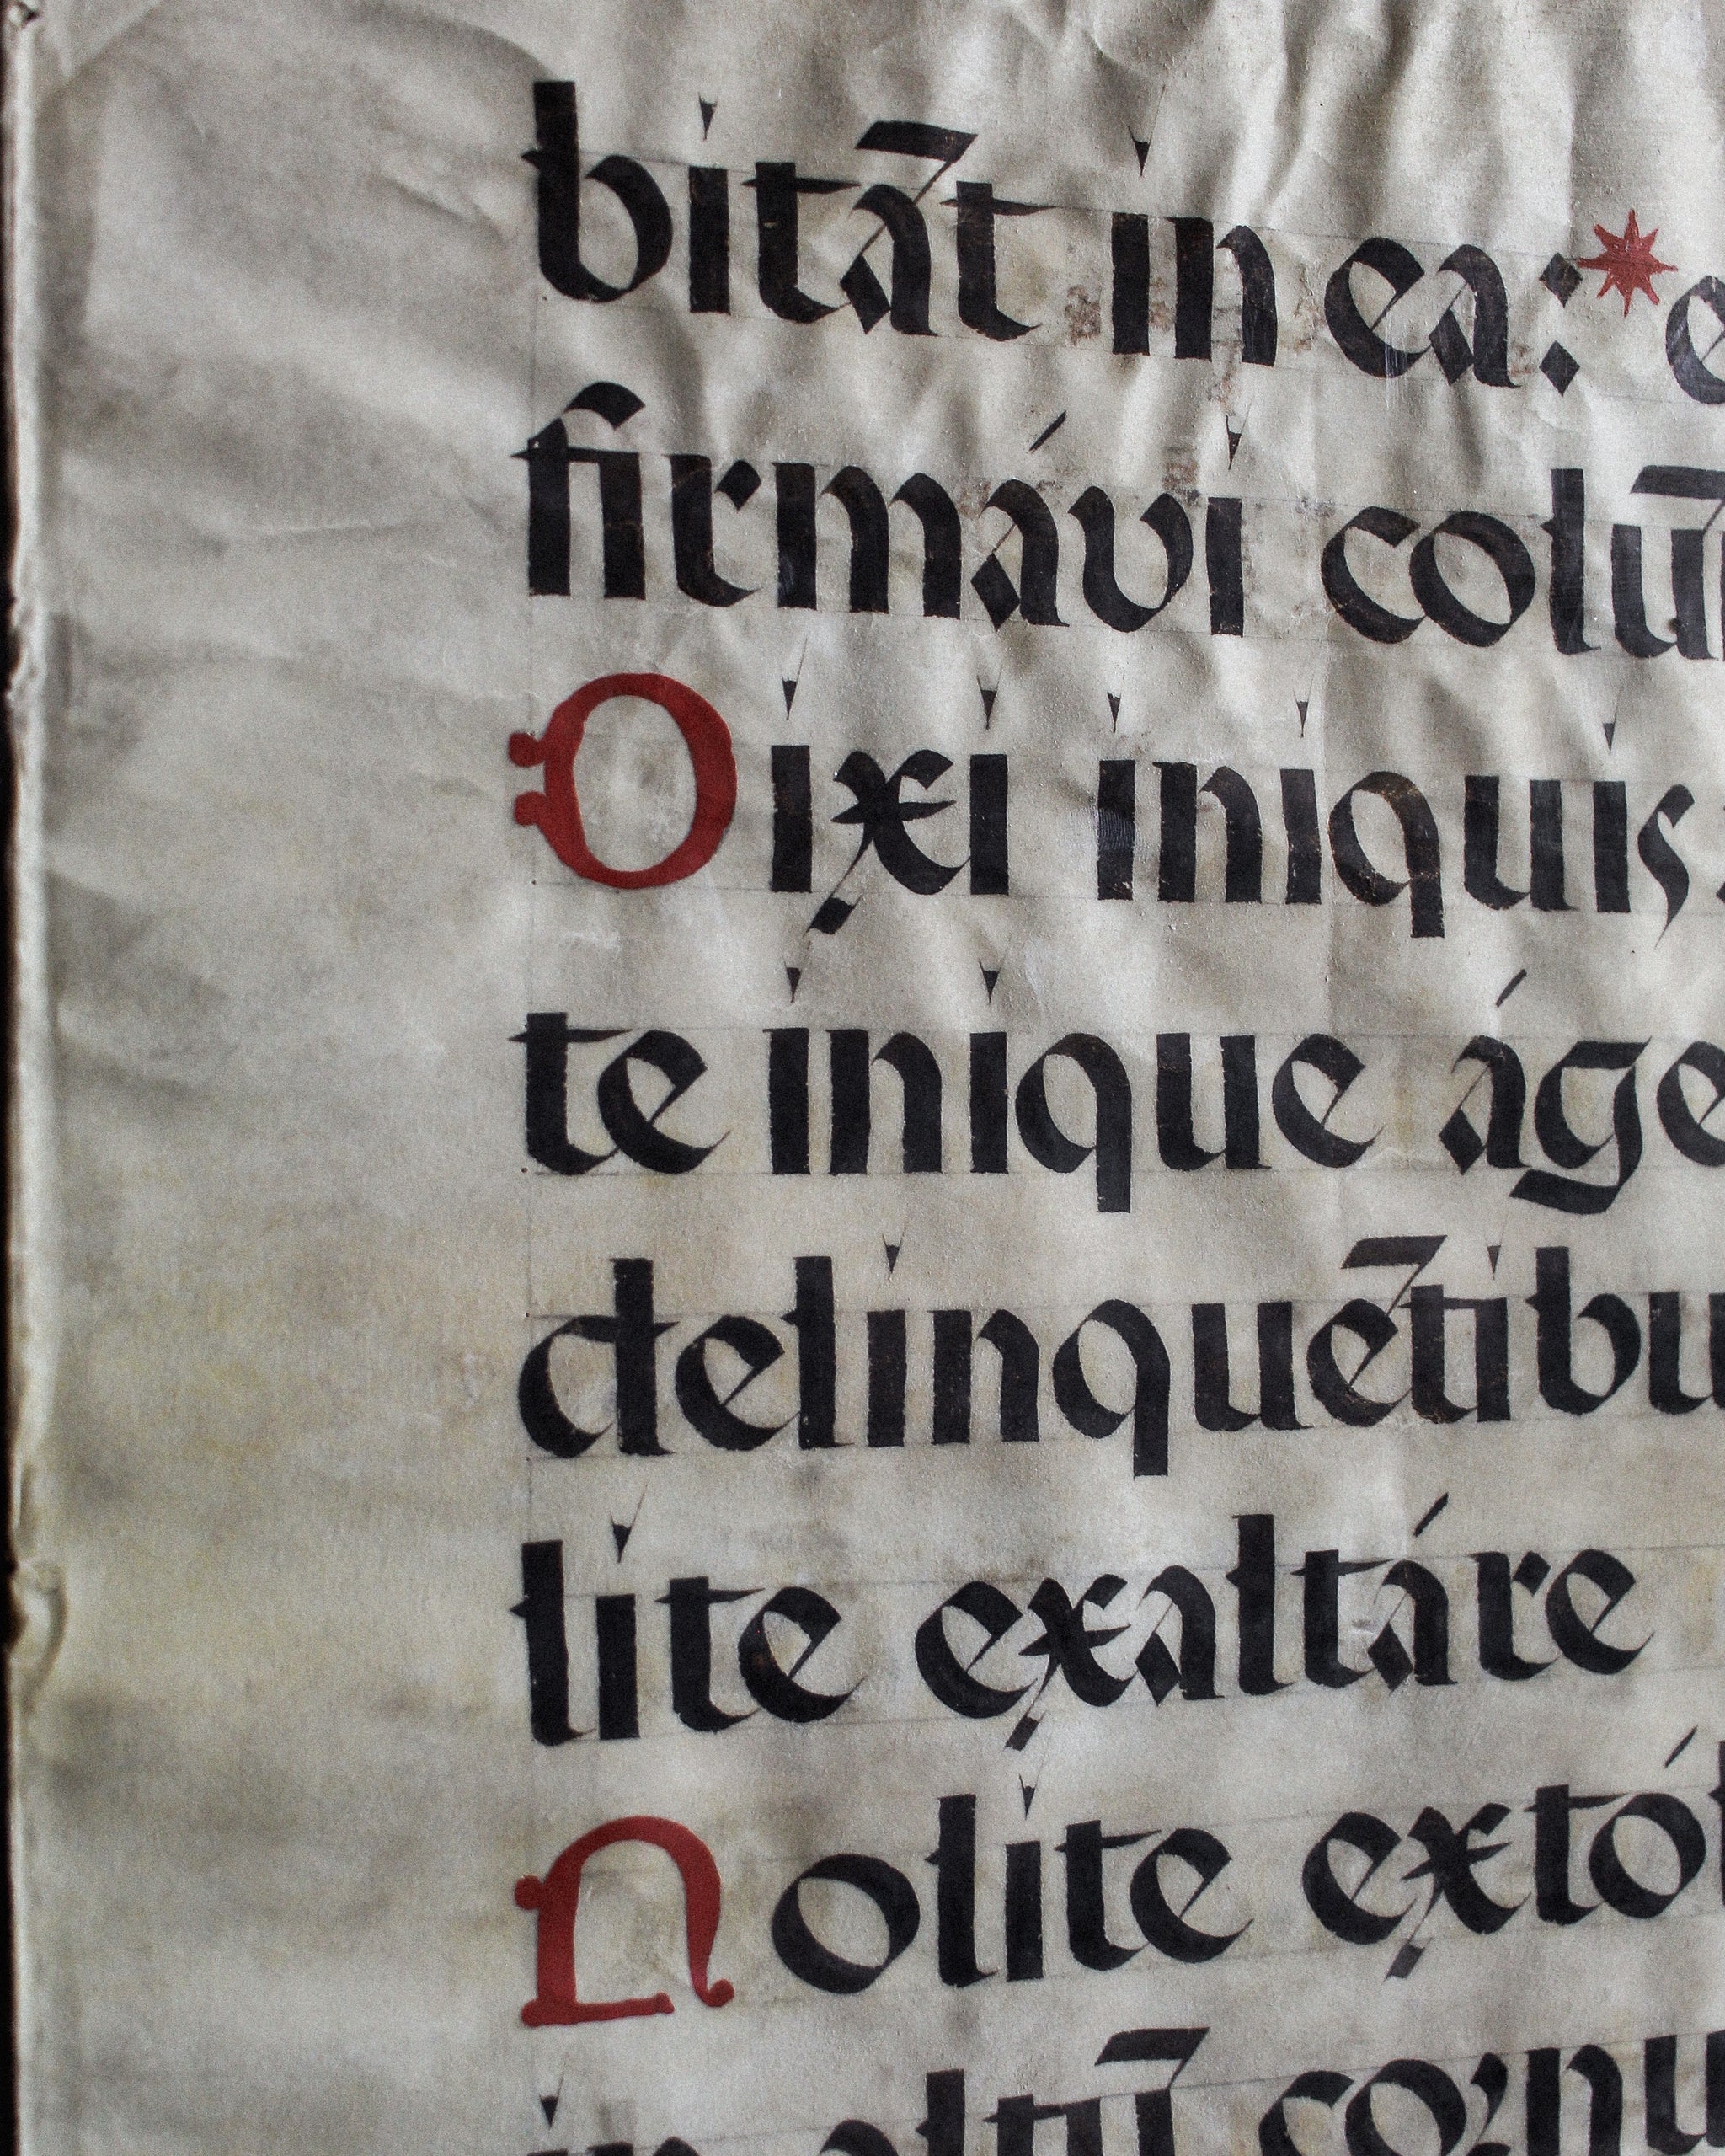 bitāt in ea:* e
firmávi colū
Dixi iniquis.
te inique áge
delinquētibu
lite exaltáre
Nolite extól
in altū cornu